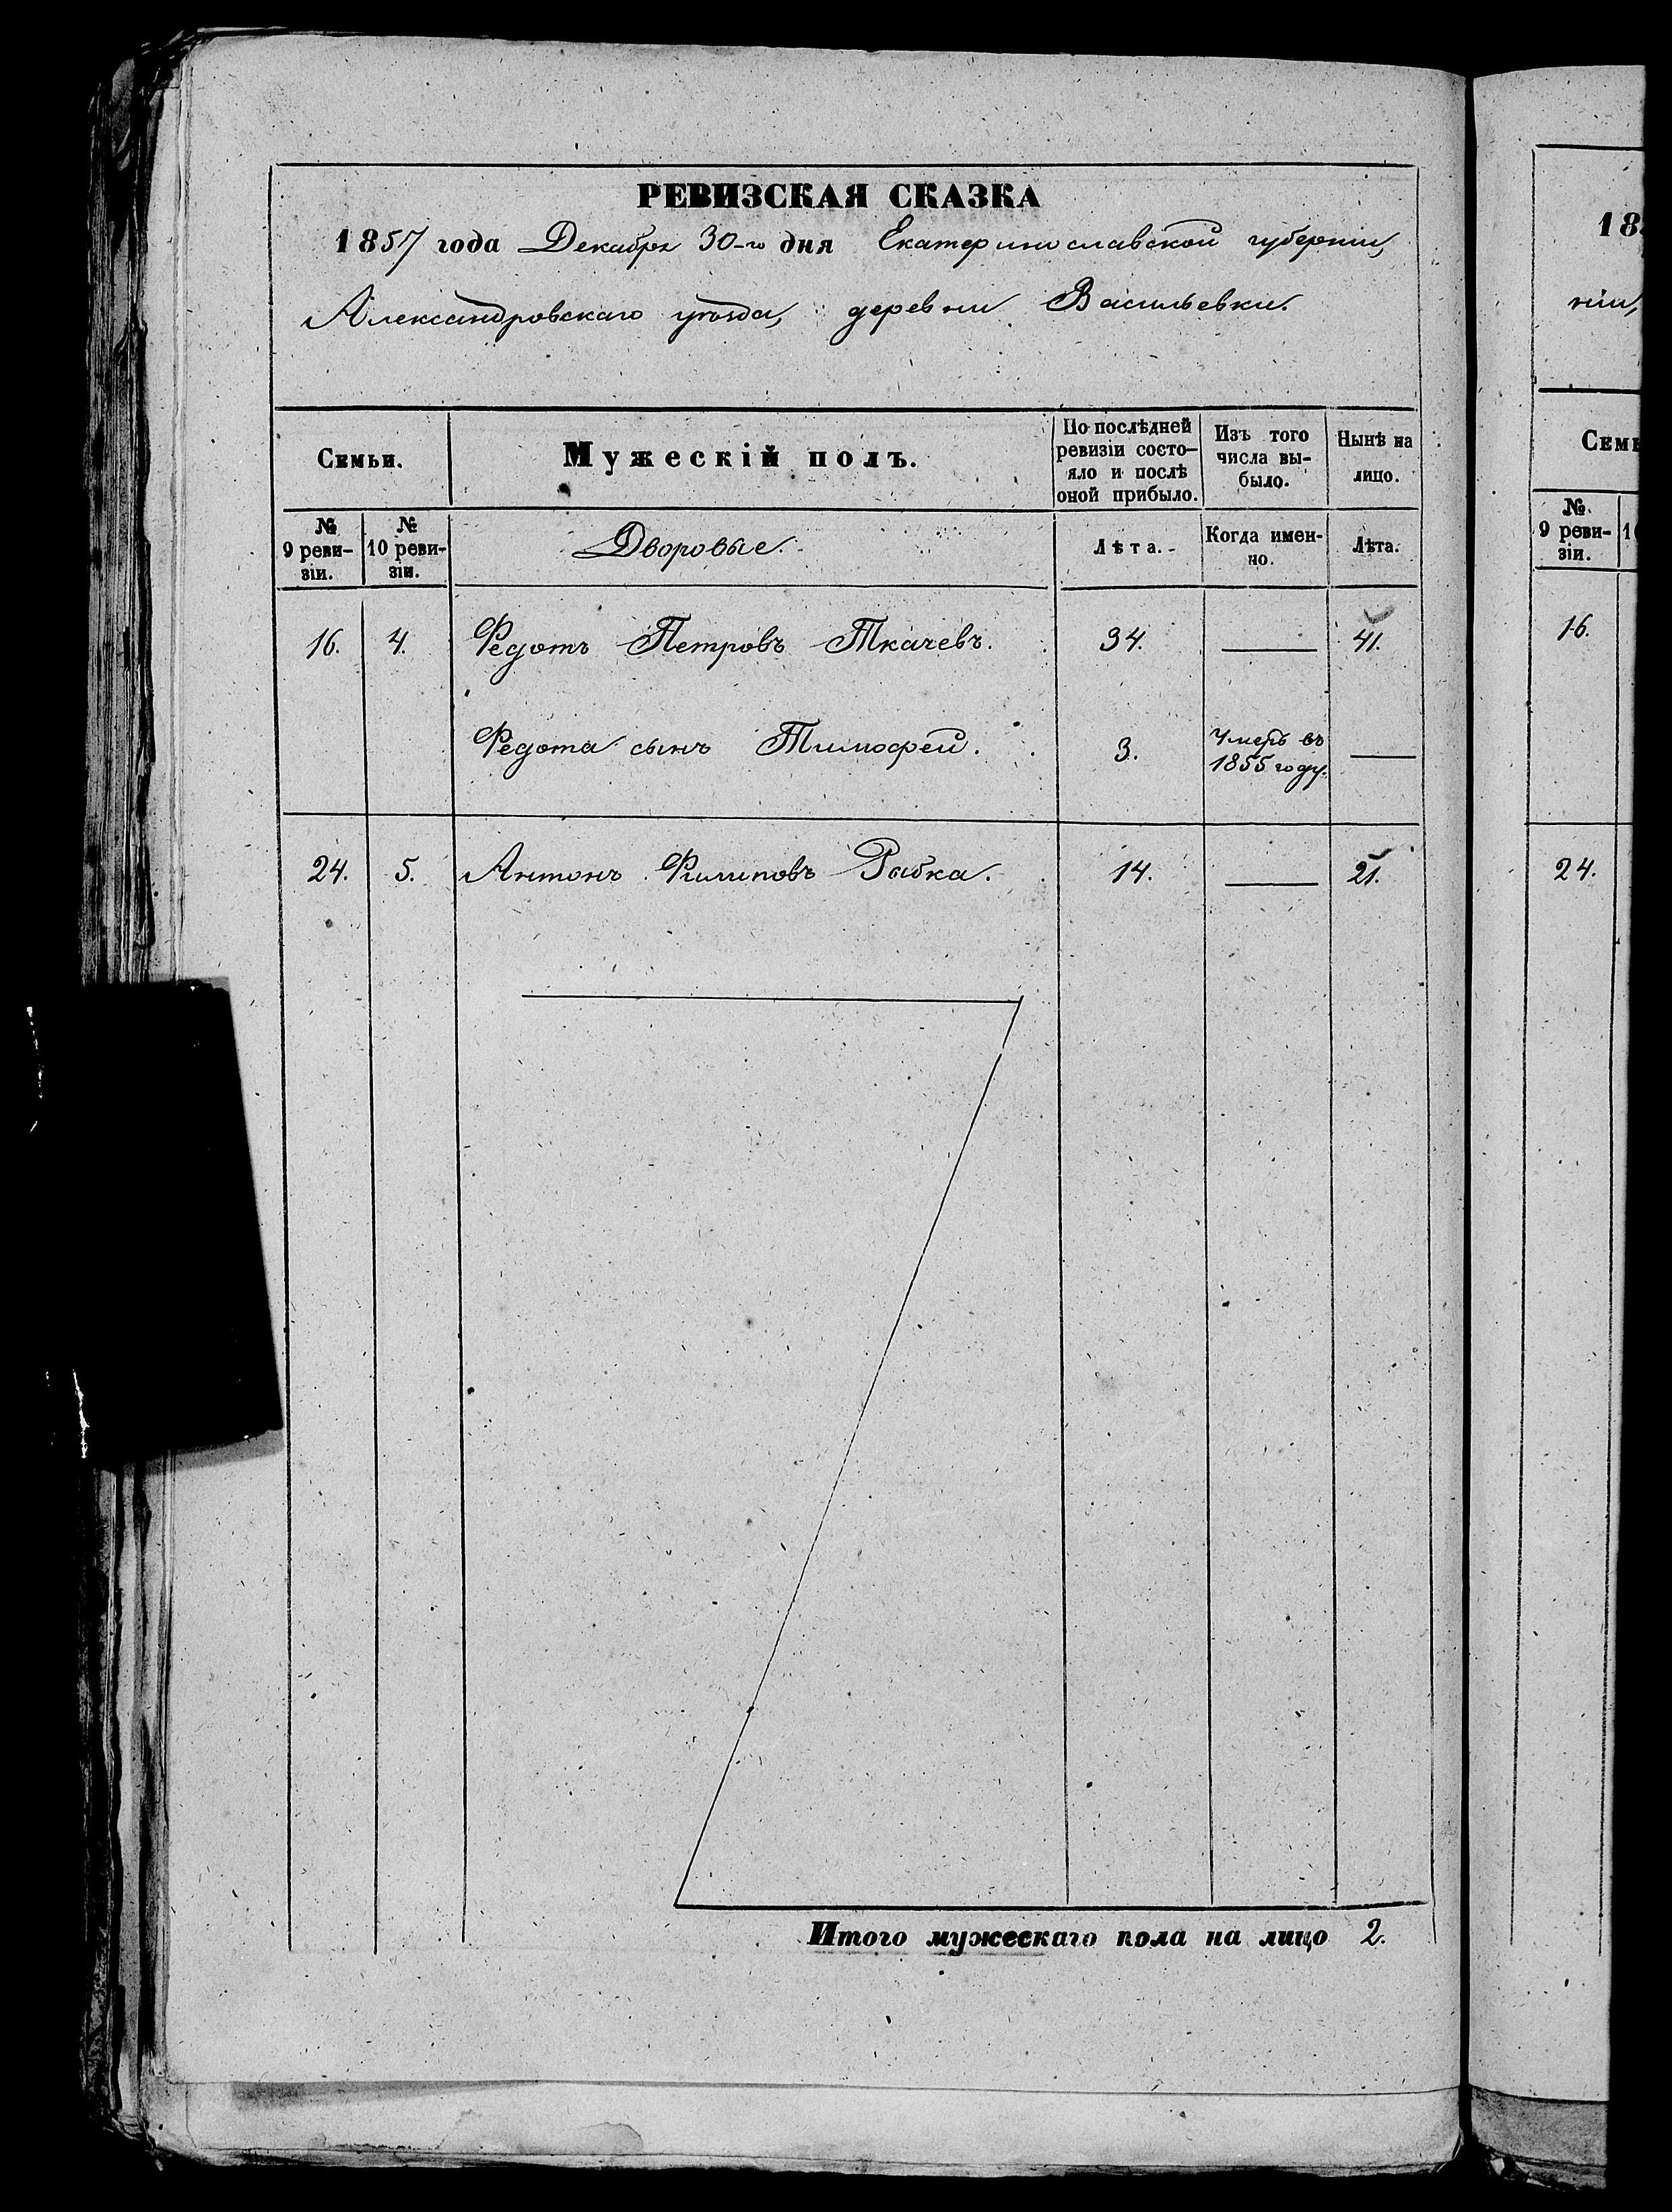 РЕВИЗСКАЯ СКАЗКА
1857 года Декабря 30-го дня Екатеринославской губерніи,
Александровскаго уѣзда, деревни Васильевки.
Семьи.
Мужескій полъ.
По послѣдней
ревизіи состо-
яло и послѣ
оной прибыло.
Изъ того
числа вы-
было.
Нынѣ на
лицо.
№
9 реви-
зіи.
№
10 реви-
зіи.
Дворовые.
Лѣта.
Когда имен-
но.
Лѣта.
16. 4. Федотъ Петровъ Ткачевъ. 34. 41.
Федота сынъ Тимофей. 3. Умеръ въ
1855 году.
24. 5. Антонъ Филиповъ Рябка. 14. 21.
Итого мужескаго пола на лицо 2.
18
ніи,
Семь
№
9 реви-
зіи.
1
16.
24.